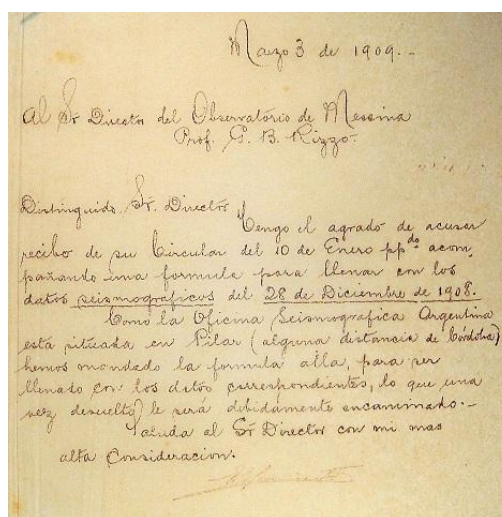 Marzo 3 de 1909.-
Al Sr Director del Observatório de Messina
Prof. G. B. Rizzo.
Distinguido Sr. Director
Tengo el agrado de acusar
recibo de su Circular del 10 de Enero pp.do acom,
pañando una formula para llenar con los
datos seismograficos del 28 de Diciembre de 1908.
Como la Oficina Seismografica Argentina
esta situada en Pilar (alguna distancia de Córdoba)
hemos mandado la formula alla, para ser
llenado con los datos correspondientes, lo que una
vez devuelto, le será debidamente encaminado.-
Saluda al Sr Director con mi mas
alta Consideracion.